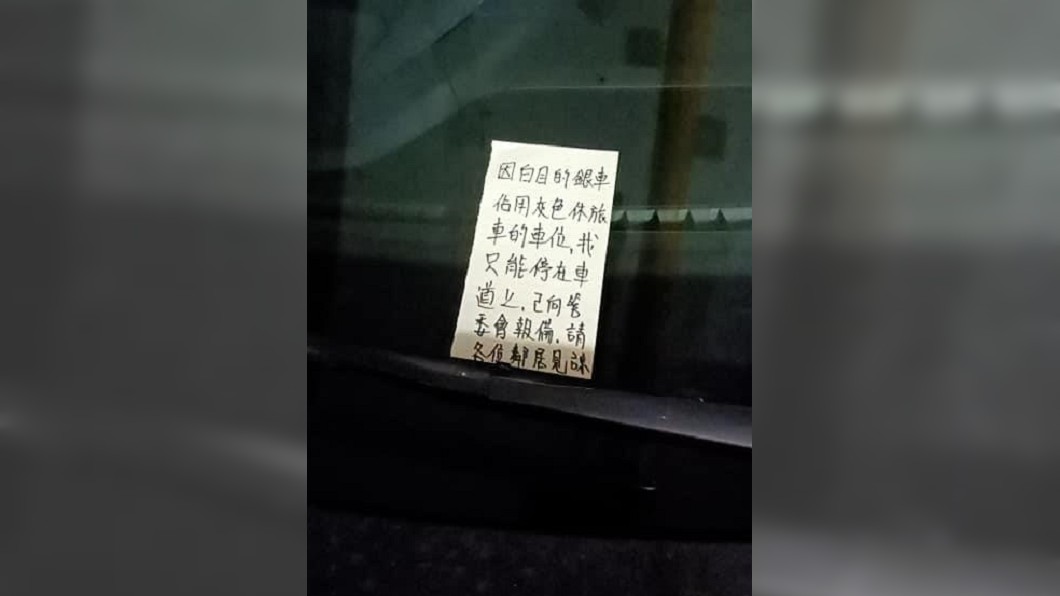 因白目的銀車
佔用灰色休旅
車的車位,我
只能停在車
道上,已向管
委會報備,請
各位鄰居見諒